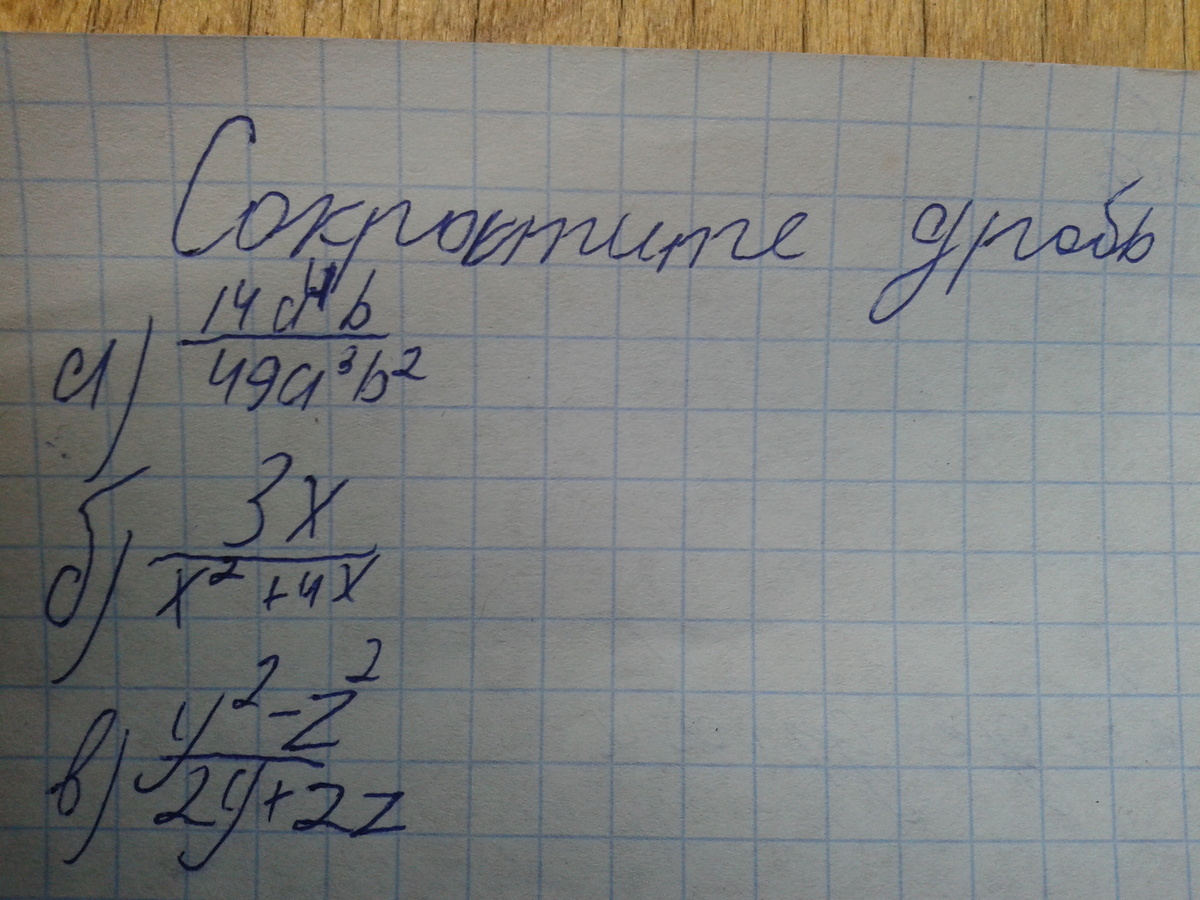 Сократите дробь
а) 14a⁴b / 49a³b²
б) 3x / x² + 4x
в) y² - z² / 2y + 2z